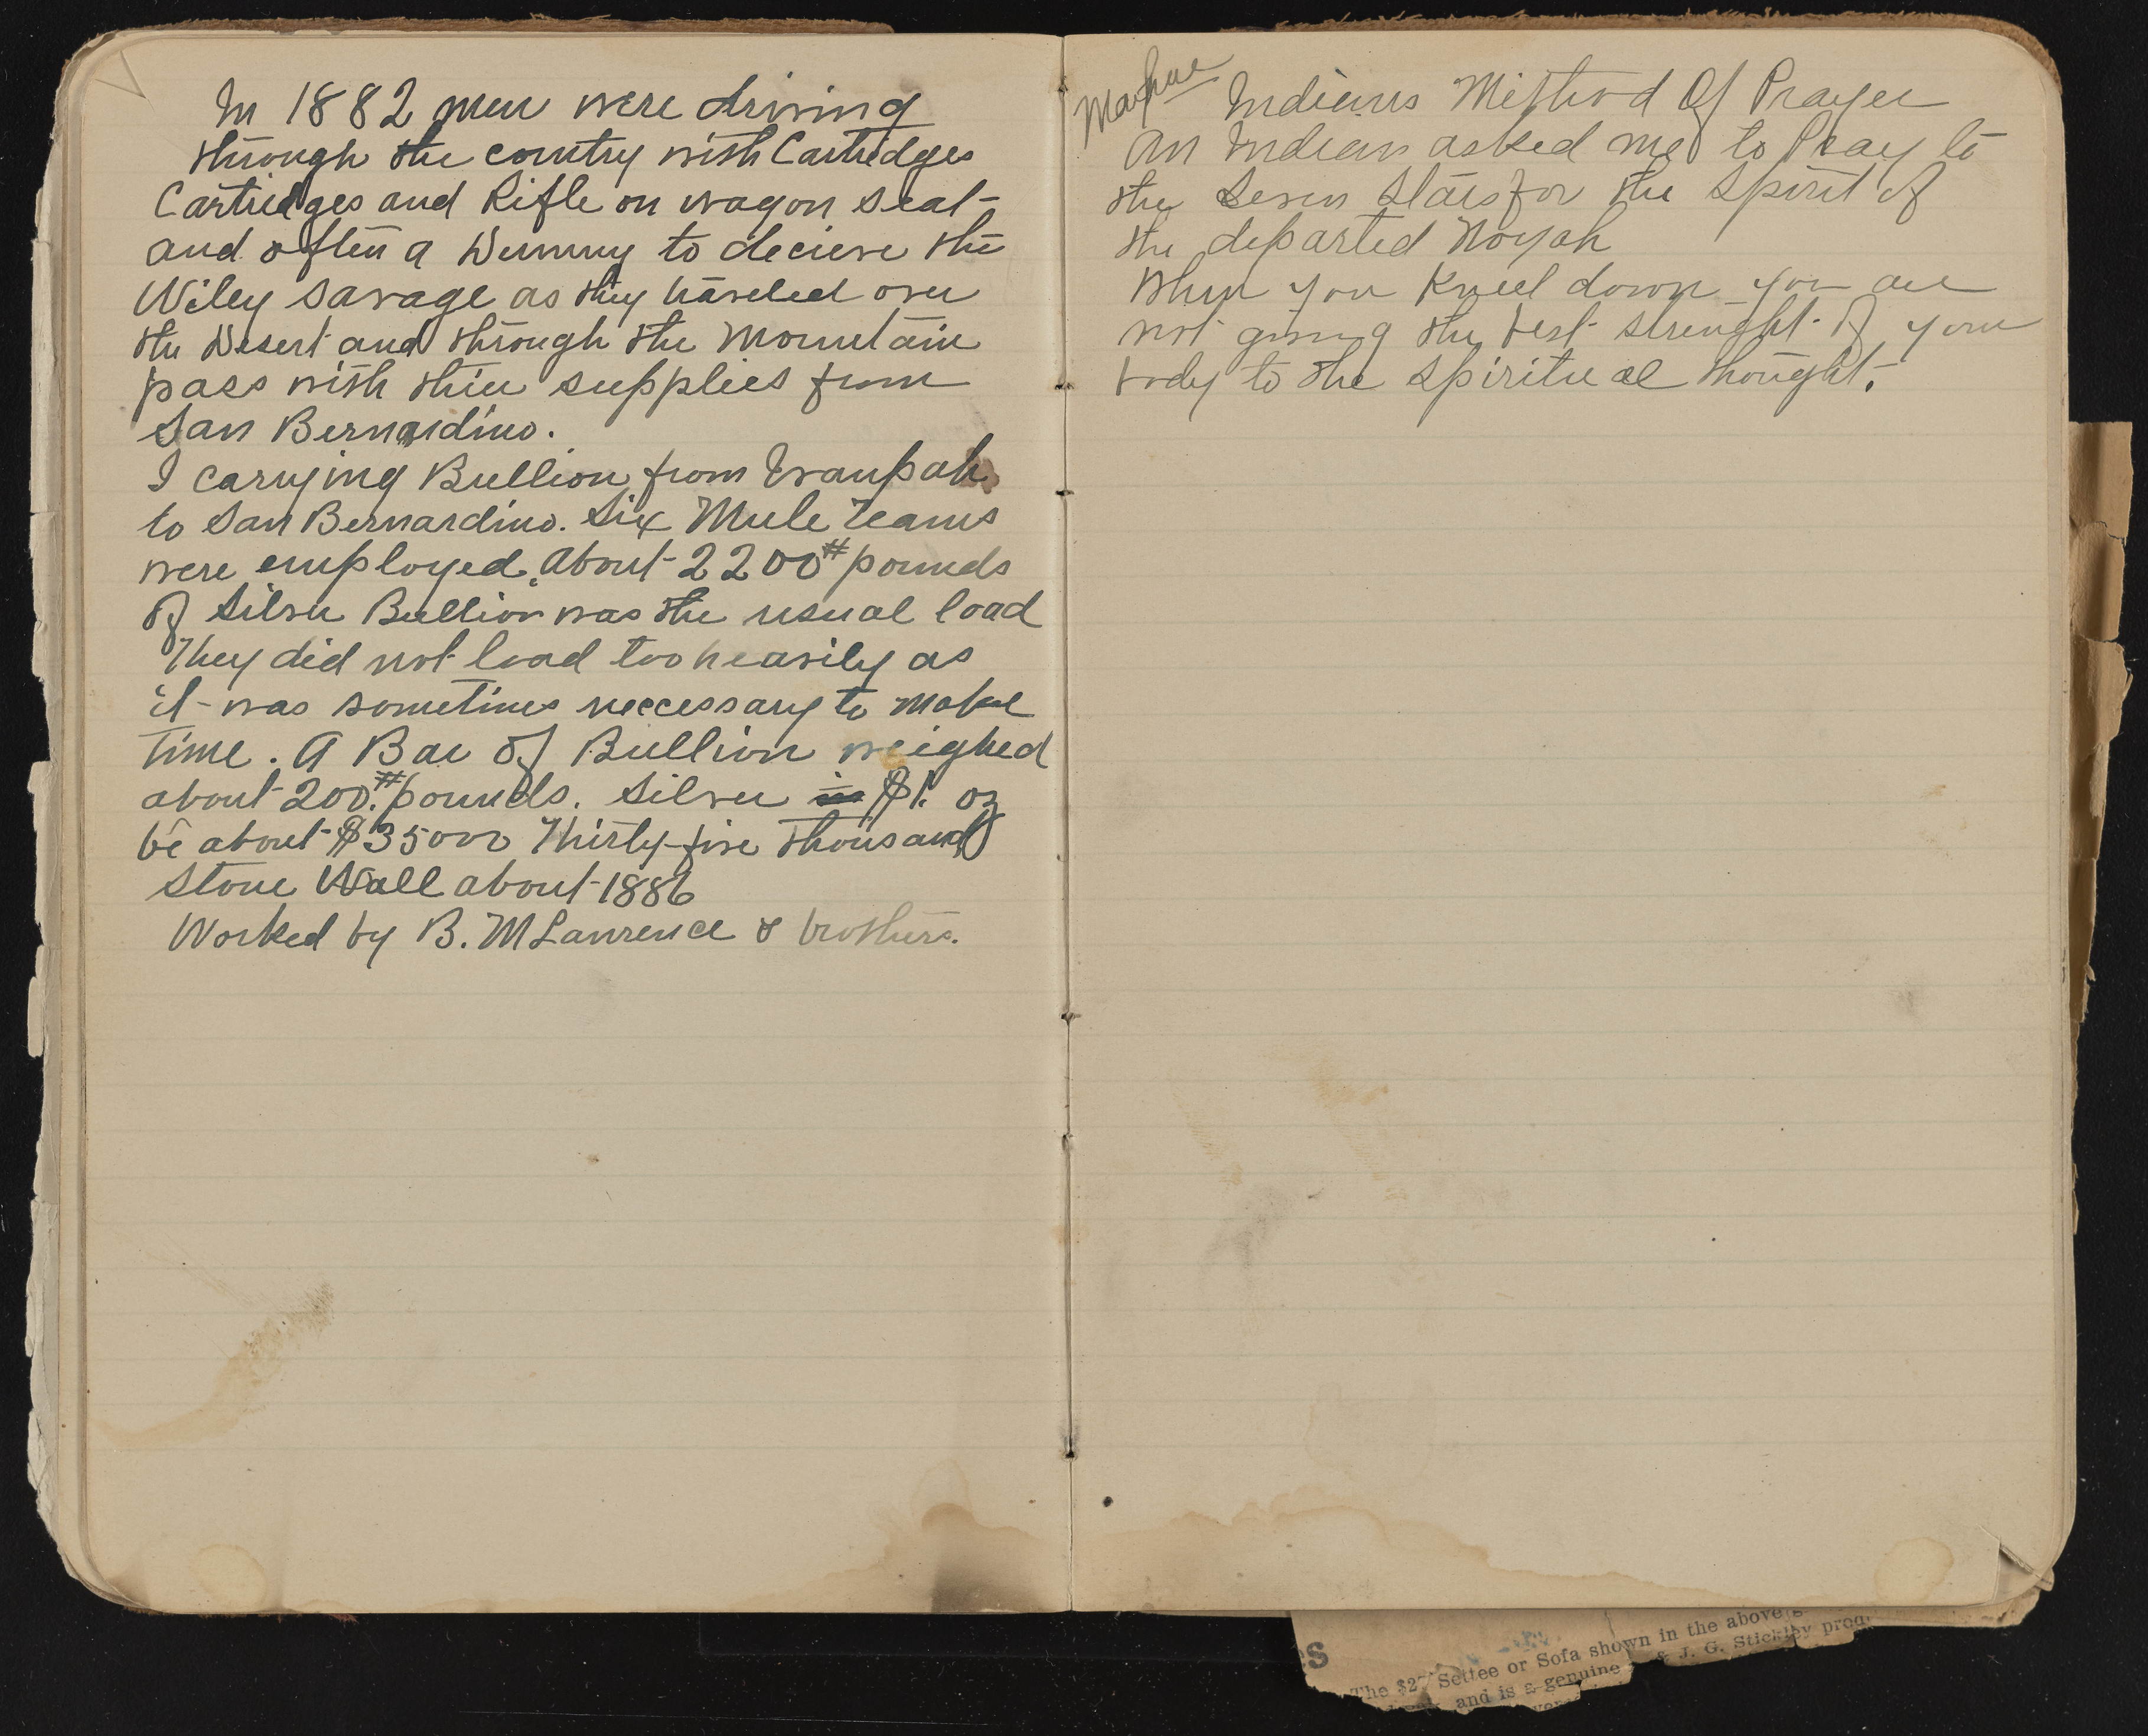 In 1882 men were driving
through the country with Cartredges
Cartriedges and Rifle on wagon seat-
and often a Dummy to decieve the
Wiley savage as they traveled over
the Desert and through the Mountain
pass with thier supplies from
San Bernardino.
I carrying Bullion from Ivanpah
to San Bernardino. Six Mule Teams
were employed. About 2200# pounds
of Silver Bullion was the usual load
They did not load too heavily as
it was sometimes neccessary to make
time. A Bar of Bullion weighed
about 200.# pounds. Silver is $1. oz
be about $35000 Thirty-five thousand
Stone Wall about 1886
Worked by B. M Lawrence & brothers.
Indians Method Of Prayer
An Indian asked me to Pray to
the Seven Stars for the Spirit of
the departed Noyah
When you Kneel down you are
not giving the best strenght of your
body to the spiritual thought.
The $27 Settee or Sofa shown in the above
and is a genuine & J. G. Stickley prod